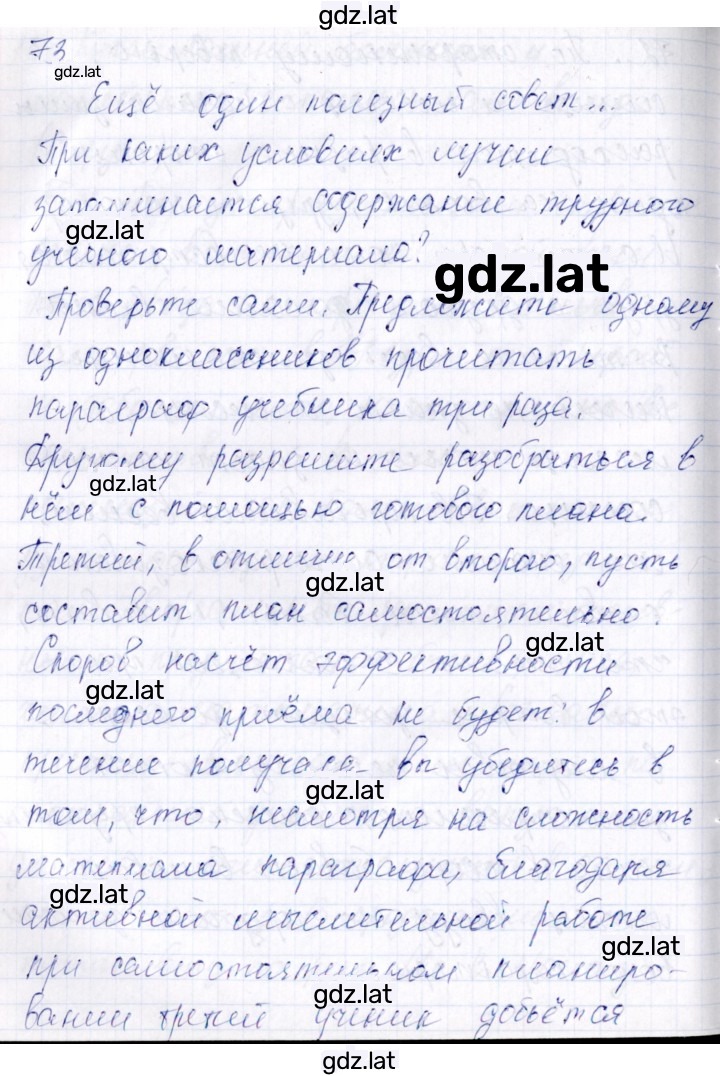 gdz.lat
73
gdz.lat
Ещё один полезный совет...
При каких условиях лучше
запоминается содержание трудного
gdz.lat
учебного материала?
gdz.lat
Проверьте сами. Предложите одному
из одноклассников прочитать
параграф учебника три раза.
Другому разрешите разобраться в
gdz.lat
нём с помощью готового плана.
Третий, в отличие от второго, пусть
gdz.lat
составит план самостоятельно.
gdz.lat
Споров насчёт эффективности
gdz.lat
последнего приёма не будет: в
течение получаса вы убедитесь в
gdz.lat
том, что, несмотря на сложность
материала параграфа, благодаря
gdz.lat
активной мыслительной работе
gdz.lat
при самостоятельном планиро-
gdz.lat
вании третий ученик добьётся
gdz.lat